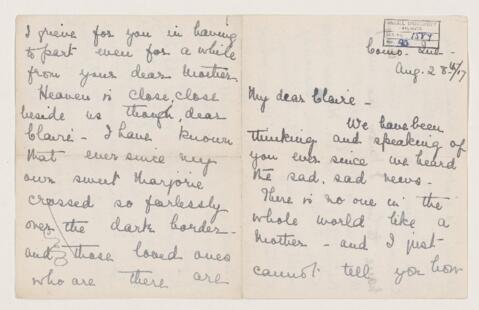 McGILL UNIVERSITY
ARCHIVES
1584
Como. Que -
Aug. 28th/17
My dear Claire -
We have been
thinking and speaking of
you ever since we heard
the sad, sad news.
There is no one in the
whole world like a
Mother - and I just
cannot tell you how
I grieve for you in having
to part even for a while
from your dear Mother.
Heaven is close, close
beside us though, dear
Claire - I have known
that ever since my
own sweet Marjorie
crossed so fearlessly
over the dark border -
and those loved ones
who are there are